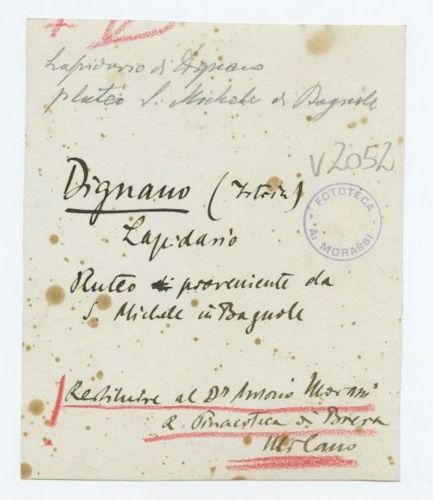 Lapidario di Dignano
pluteo S. Michele di Bagnole
V2052
Dignano (Istria)
FOTOTECA
A. MORASSI
Lapidario
Pluteo proveniente da
S. Michele in Bagnole
Restituire al Dr Antonio Morassi
R. Pinacoteca di Brera
Milano